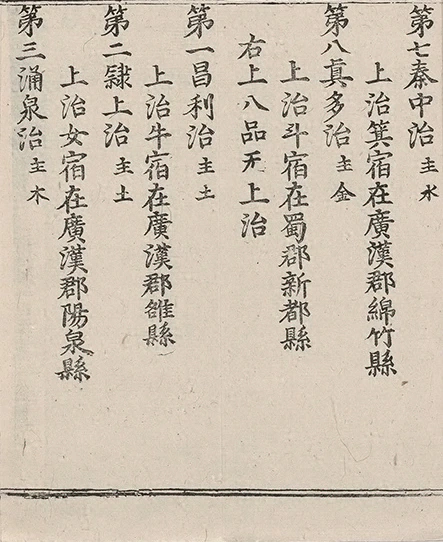 第七秦中治主水
上治箕宿在廣漢郡綿竹縣
第八眞多治主金
上治斗宿在蜀郡新都縣
右上八品无上治
第一昌利治主土
上治牛宿在廣漢郡雒縣
第二隸上治主土
上治女宿在廣漢郡陽泉縣
第三涌泉治主木